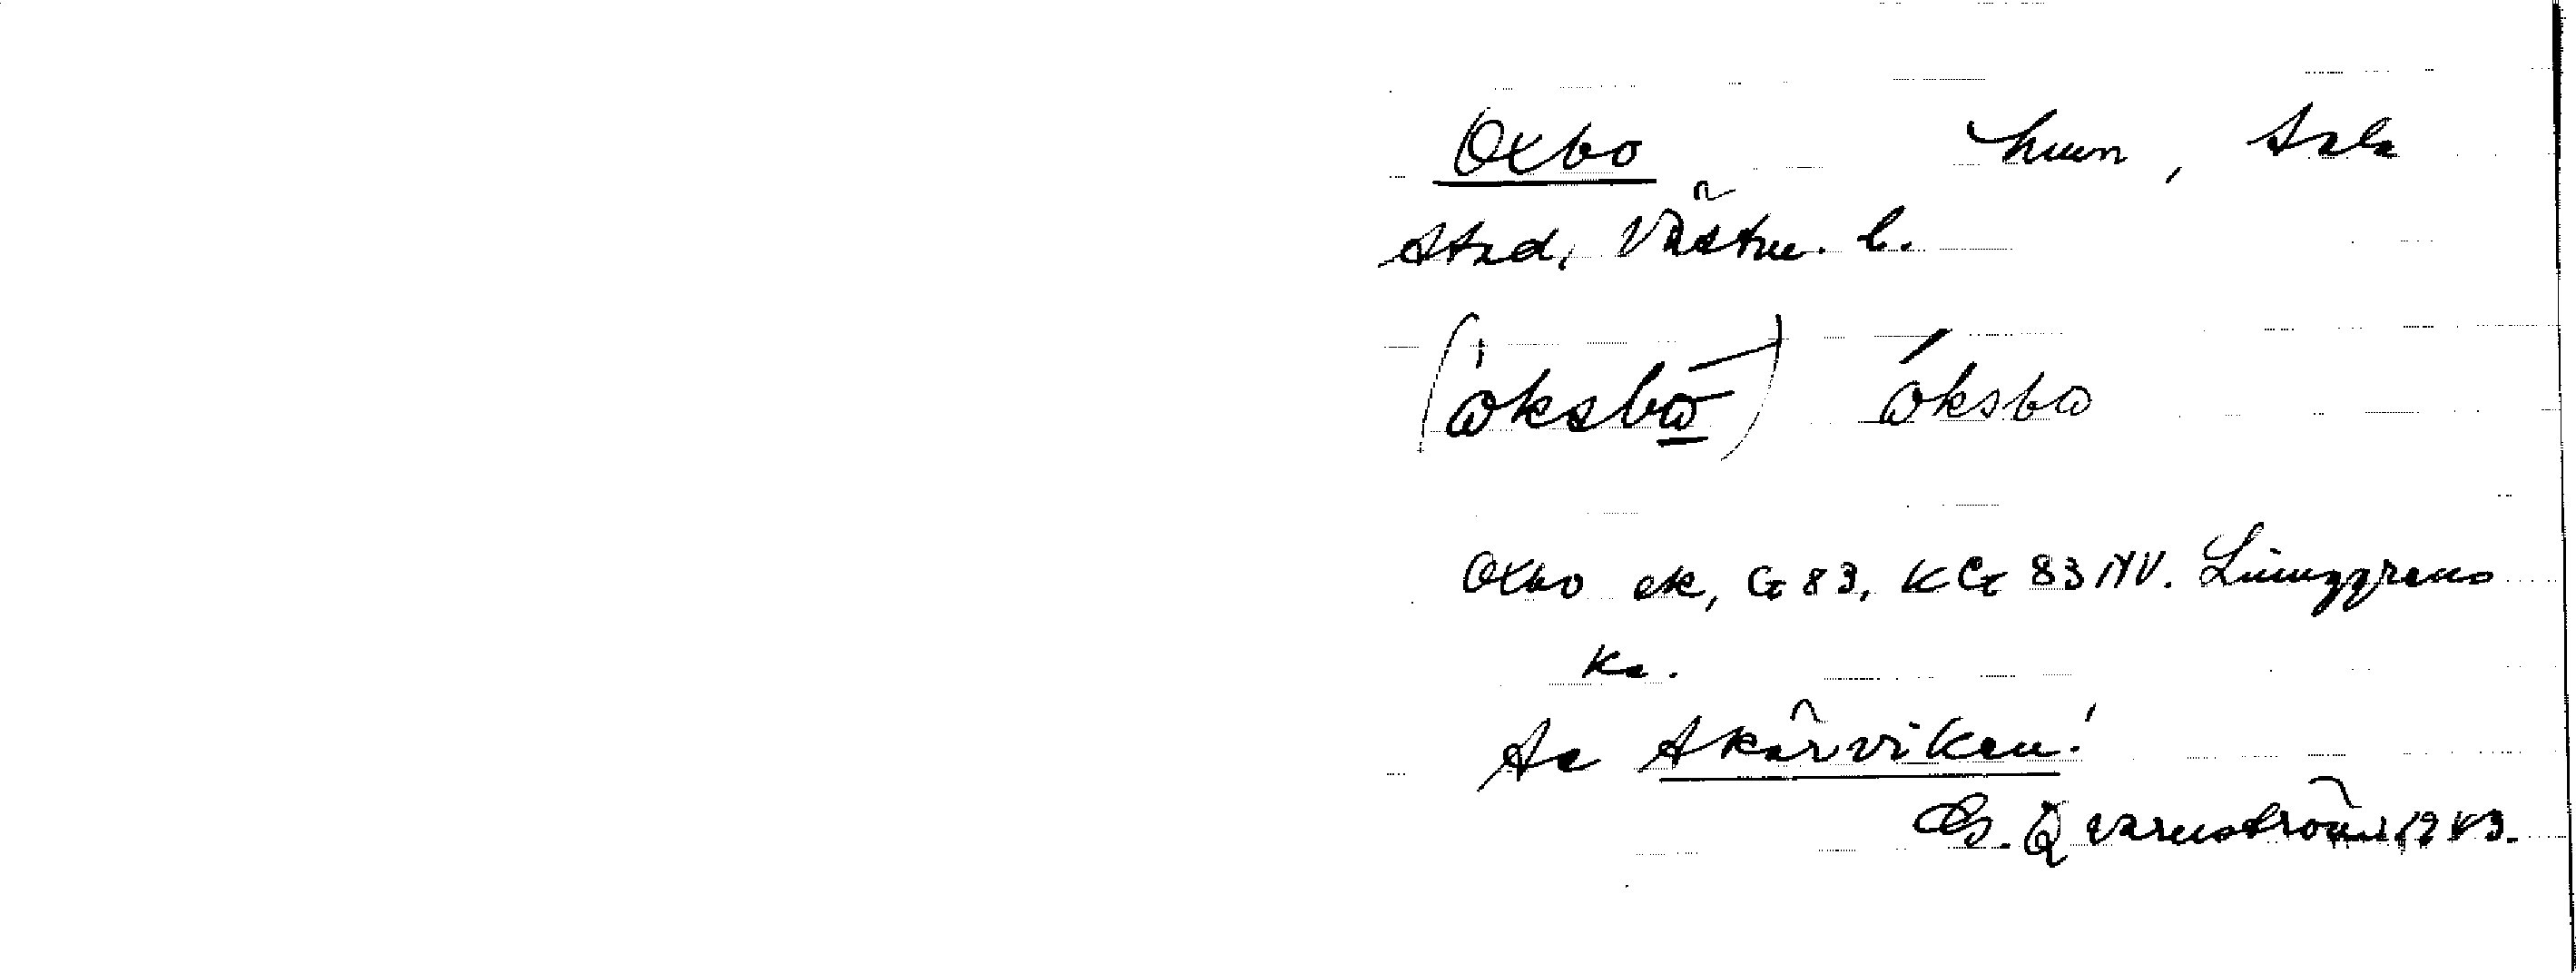 Oxbo hum, Sala
stad, Västm. l.
(òksbω) óksbω
Oxbo ek, G 83, KG 83 NV. Ljunggrens
ka.
Se Skärviken!
G. Qvarnström 1943.